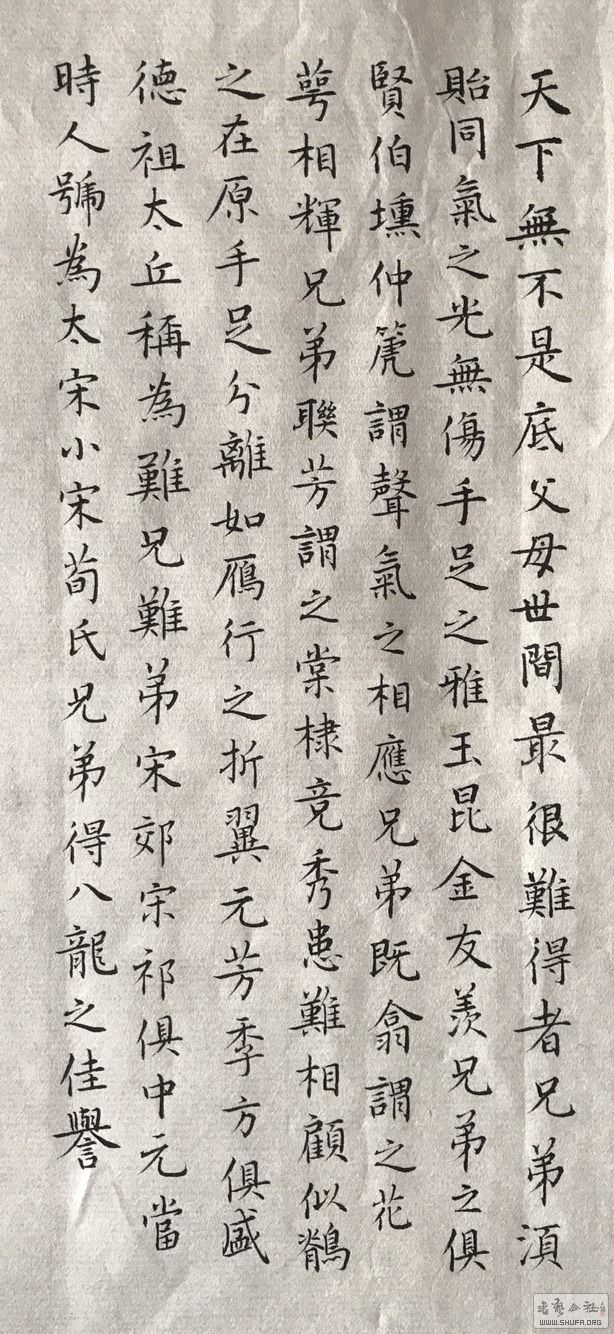 天下無不是底父母世間最很難得者兄弟湏
貽同氣之光無傷手足之雅玉昆金友羨兄弟之俱
賢伯壎仲箎謂聲氣之相應兄弟既翕謂之花
萼相輝兄弟聯芳謂之棠棣竞秀患難相顧似鶺
之在原手足分離如鴈行之折翼元芳季方俱盛
德祖太丘稱為難兄難弟宋郊宋祁俱中元當
時人號為大宋小宋荀氏兄弟得八龍之佳譽
書藝公社
WWW.SHUFA.ORG